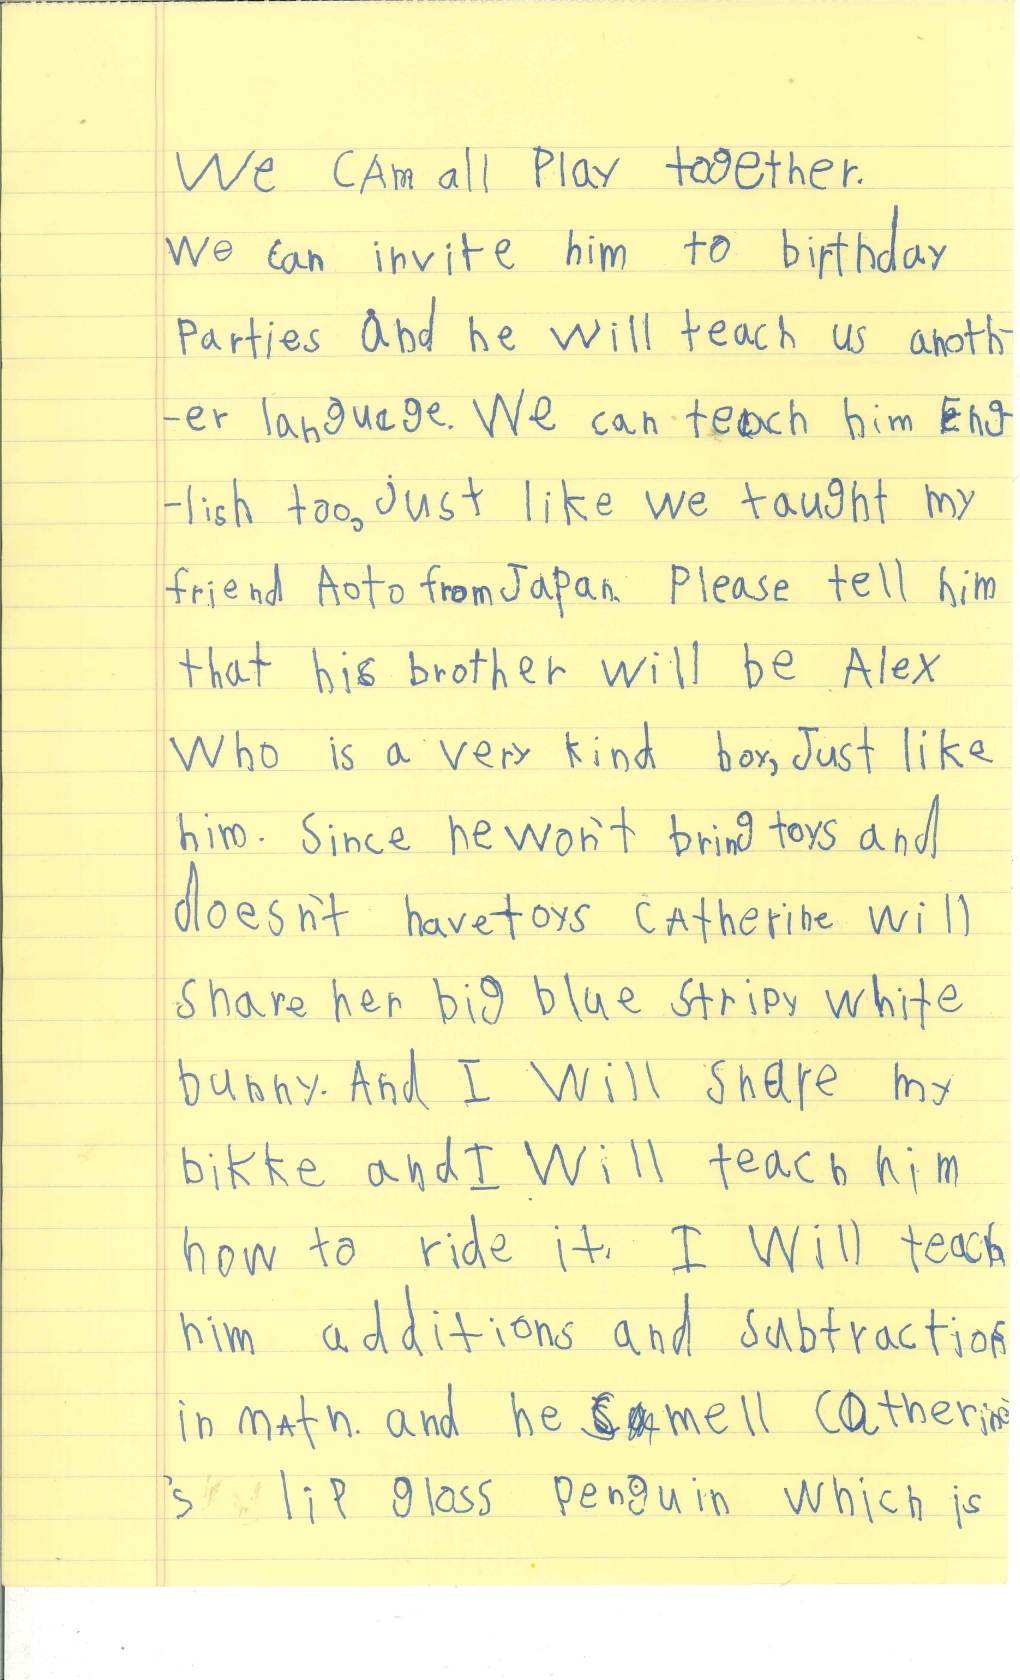 We CAm all Play together.
We can invite him to birthday
Parties and he will teach us anoth-
-er language. We can teach him Eng
-lish too, just like we taught my
friend Aoto from Japan. Please tell him
that his brother will be Alex
Who is a very kind boy, Just like
him. Since he won't bring toys and
doesn't have toys CAtherine will
Share her big blue stripy white
bunny. And I Will share my
bikke and I Will teach him
how to ride it. I Will teach
him additions and subtraction
in mAth. and he smell Catherine
's lip gloss penguin which is